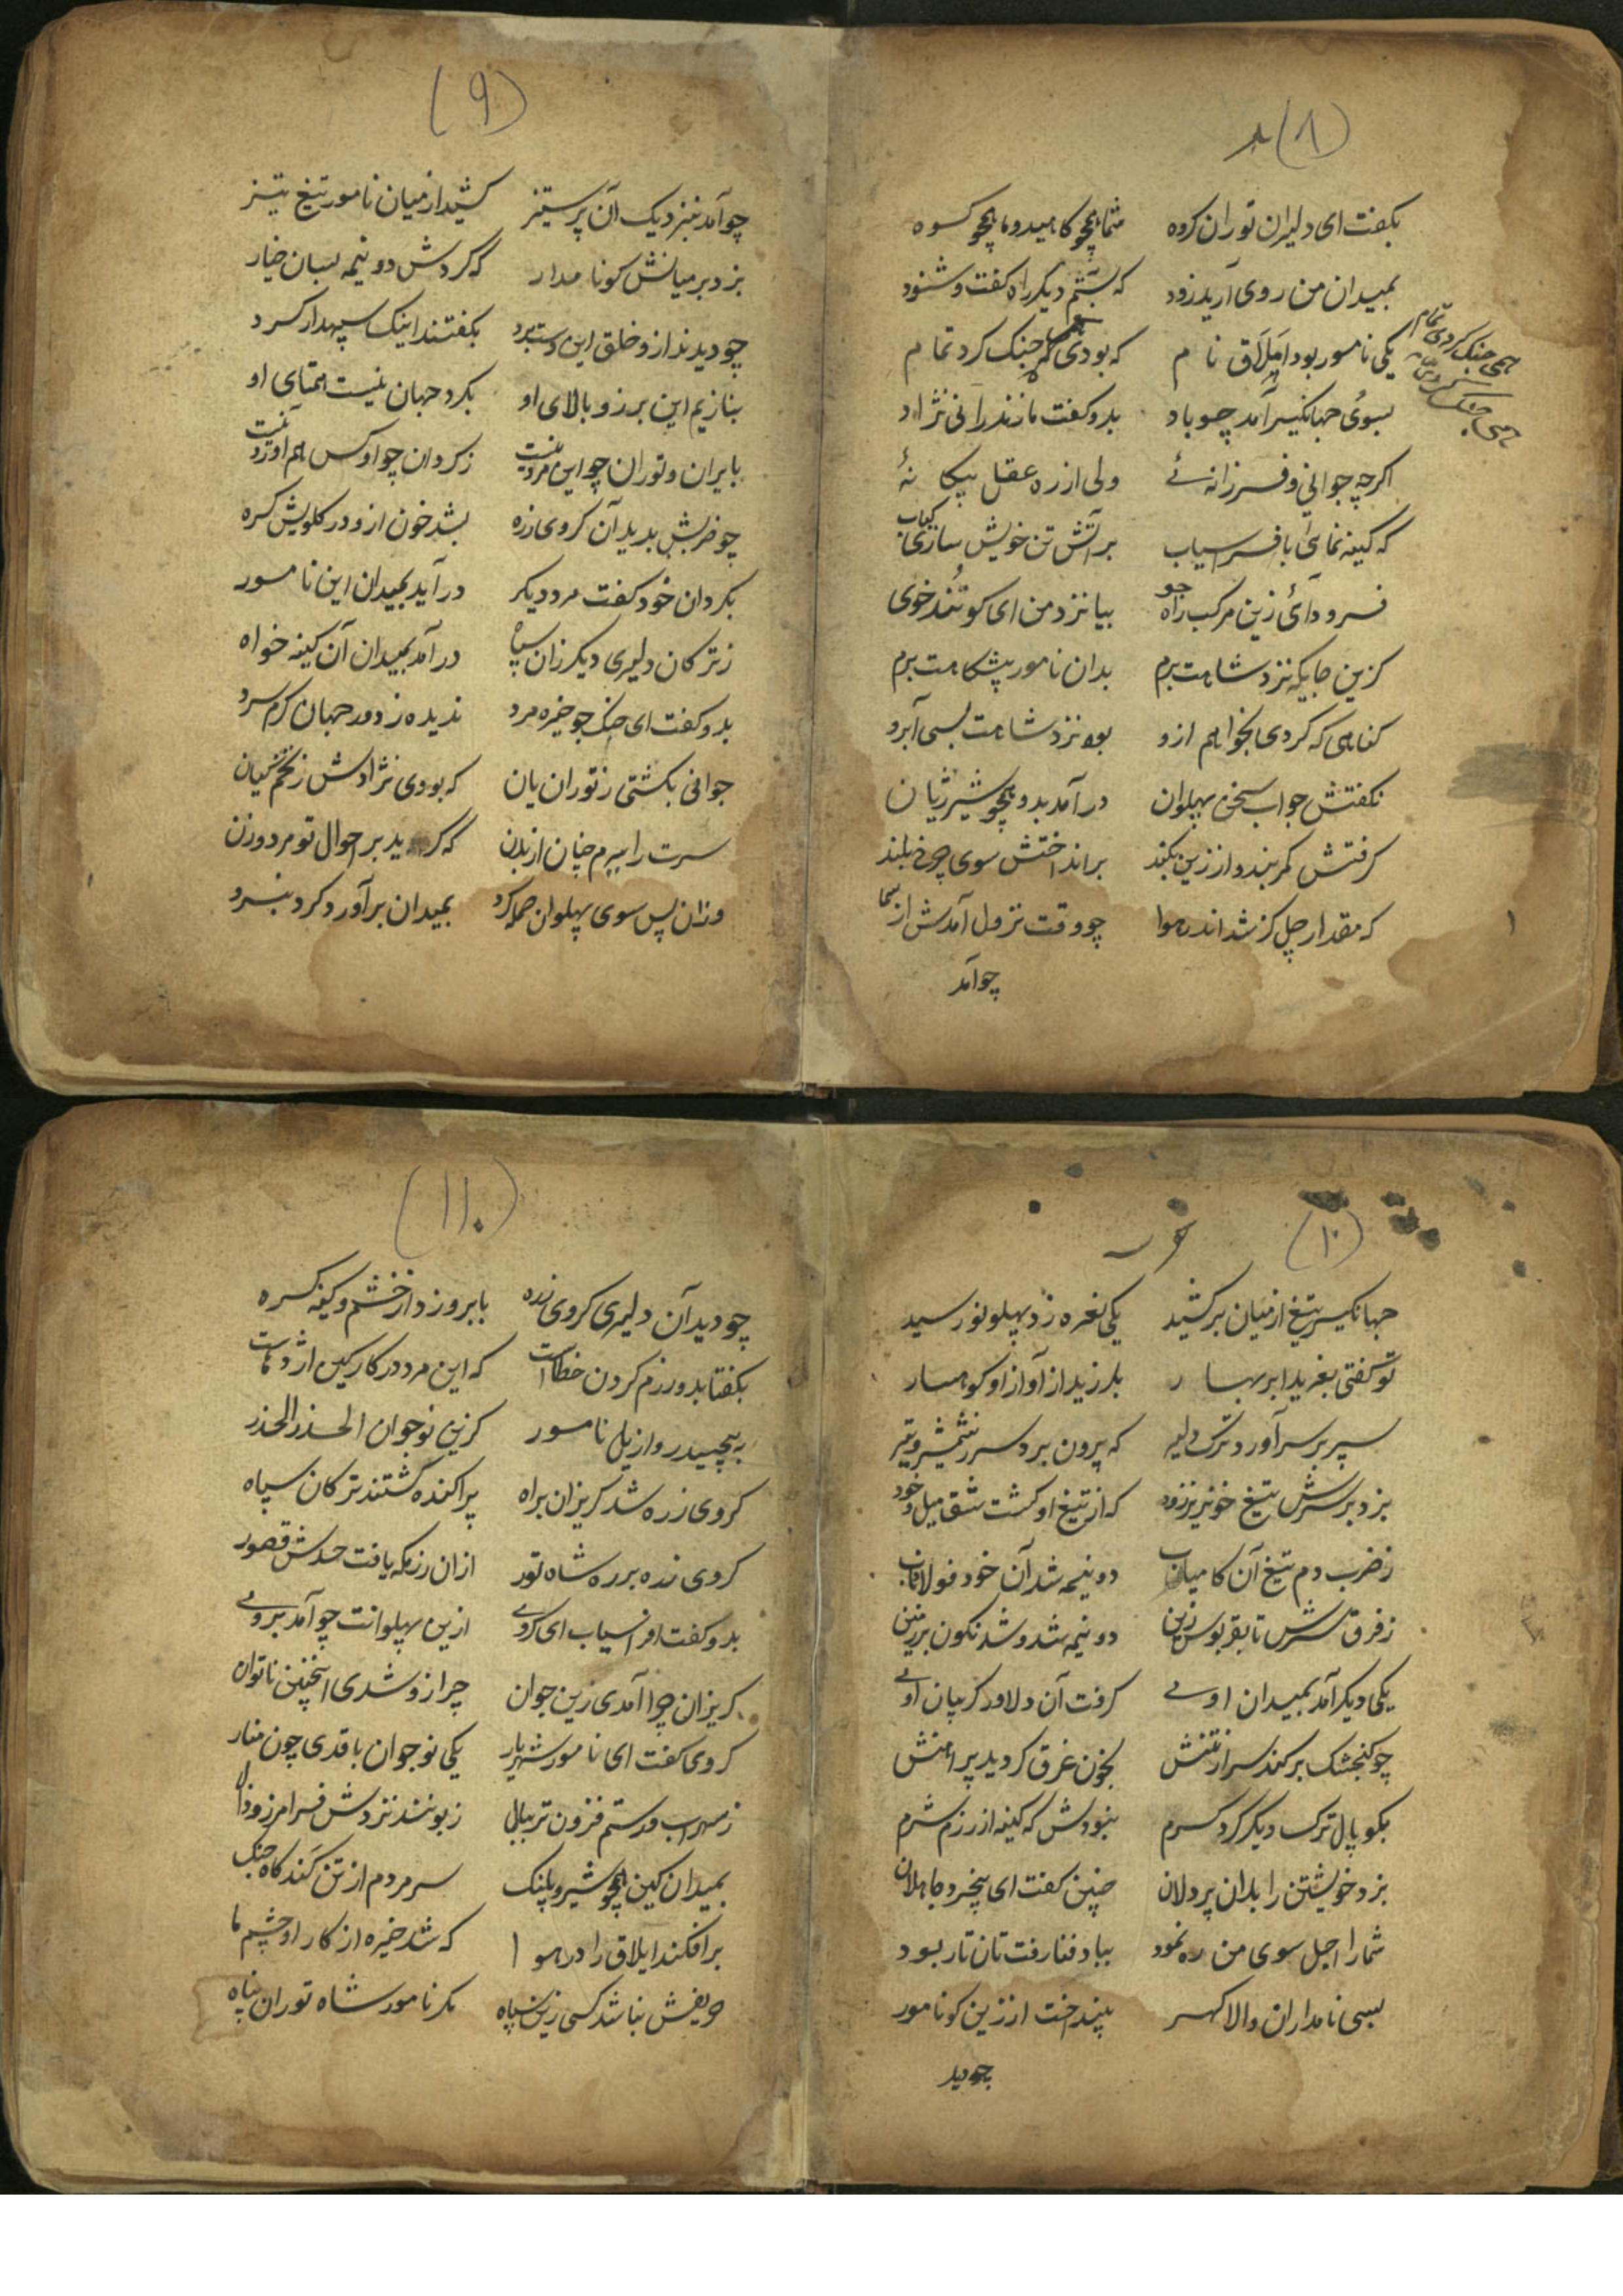 (۸)
بکفت ای دلیران توران کروه شما همچو کاهید و ما همچو کوه
بمیدان من روی آرید زود که بستم دیکر راه کفت و شنود
یکی نامور بود ایلاق نام که بودی همه جنک کرد تمام
همی جنک کردی تمام
بسوی جهانکیر آمد چو باد بدو کفت مازندرانی نژاد
اکرچه جوانی و فرزانهٔ ولی از ره عقل بیکانهٔ
که کینه نمائی بافراسیاب بر آتش تن خویش سازی کباب
فرود آئی زین مرکب راه جو بیا نزد من ای کو تند خوی
کزین جایکه نزد شاهت برم بدان نامور پیشکاهت برم
کناهی که کردی بخواهم ازو بود نزد شاهت بسی آبرو
نکفتش جواب سخن پهلوان درآمد بدو همچو شیر ژیان
کرفتش کمربند و از زین بکند برانداختش سوی چرخ بلند
که مقدار چل کز شد اندر هوا چو وقت نزول آمدش از سما
چو آمد
(۹)
چو آمد بنزدیک آن پر ستیز کشید از میان نامور تیغ تیز
بزد بر میانش کو نامدار که کردش دو نیمه بسان خیار
چو دیدند ازو خلق این دستبرد بکفتند اینک سپهدار کرد
بنازیم این برز و بالای او بکرد جهان نیست همتای او
بایران و توران چو این مرد نیست ز کردان چو او کس هم آورد نیست
چو ضربش بدید آن کروی زره بشد خون ازو در کلویش کره
بکردان خود کفت مرد دیکر درآید بمیدان این نامور
ز ترکان دلیری دیکر زان سپاه درآمد بمیدان آن کینه خواه
بدو کفت ای جنک جو خیره مرد ندیده ز دور جهان کرم سرد
جوانی بکشتی ز توران یان که بودی نژادش ز تخم کیان
سرت را ببرم چنان از بدن که کرید بر احوال تو مرد و زن
وزان پس سوی پهلوان حمله کرد بمیدان برآورد کرد نبرد
(۱۰)
جهانکیر تیغ از میان برکشید یکی نعره زد پهلو نو رسید
تو کفتی بغرید ابر بهار بلرزید از آواز او کوهسار
سپر بر سر آورد ترک دلیر که بیرون برد سر ز شمشیر و تیر
بزد بر سرش تیغ خونریز زود که از تیغ او کشت شق میل و خود
ز ضرب دم تیغ آن کامیاب دو نیمه شد آن خود فولاد ناب
ز فرق سرش تا بقربوس زین دو نیمه شد و شد نکون بر زمین
یکی دیکر آمد بمیدان اوی کرفت آن دلاور کریبان اوی
چو کنجشک برکند سر از تنش بخون غرق کردید پیراهنش
بکوپال ترک دیکر کرد کرم نبودش که کینه از رزم شرم
بزد خویشتن را بدان پر دلان چنین کفت ای بیخرد جاهلان
شما را اجل سوی من ره نمود بباد فنا رفت تان تار بود
بسی نامداران والا کهر بینداخت از زین کو نامور
چو دید
(۱۱)
چو دید آن دلیری کروی زره بابرو زد از خشم و کینه کره
بکفتا بدو رزم کردن خطاست که این مرد در کار کین اژدهاست
به پیچید رو از یل نامور کزین نوجوان الحذر الحذر
کروی زره شد کریزان براه پراکنده کشتند ترکان سپاه
کروی زده بر ره شاه تور ازان رزمکه یافت حدش قصور
بدو کفت افراسیاب ای کروی ازین پهلوانت چو آمد بروی
کریزان چرا آمدی زین جوان چرا زو شدی اینچنین ناتوان
کروی کفت ای نامور شهریار یکی نوجوان با قدی چون منار
ز سهراب و رستم فزون تر ببال زبونند نزدش فرامرز و زال
بمیدان کین همچو شیر و پلنک سر مردم از تن کند کاه جنک
برافکند ایلاق را در هوا که شد خیره از کار او چشم ما
حریفش نباشد کسی زین سپاه مکر نامور شاه توران پناه